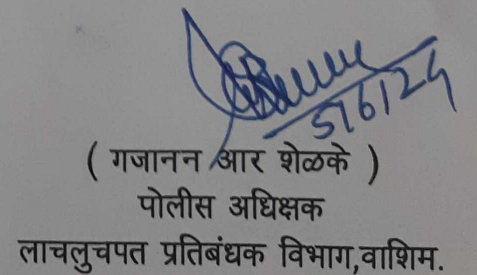 5/6/24
( गजानन आर शेळके )
पोलीस अधिक्षक
लाचलुचपत प्रतिबंधक विभाग,वाशिम.